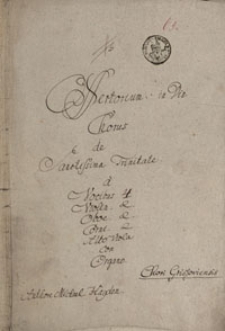 Offertorium in D
Chorus
de
Sanctissima Trinitate
à
Vocibus 4
Violin 2
Oboe 2
Corni 2
Alto Viola
con
Organo
Chori Gregoriensis
Authore Michael Haydn